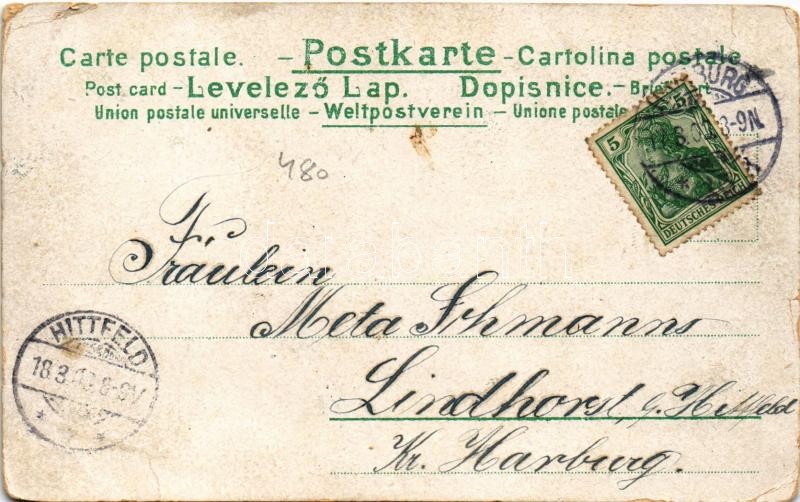 Carte postale. – Postkarte – Cartolina postale
Post card – Levelező Lap. Dopisnice. –
Union postale universelle – Weltpostverein – Unione postale
BURG
8-9N.
5
5
DEUTSCHES REICH
480
Fräulein
Meta
Lindhorst,
Kr. Harburg.
HITTFELD
18.3.